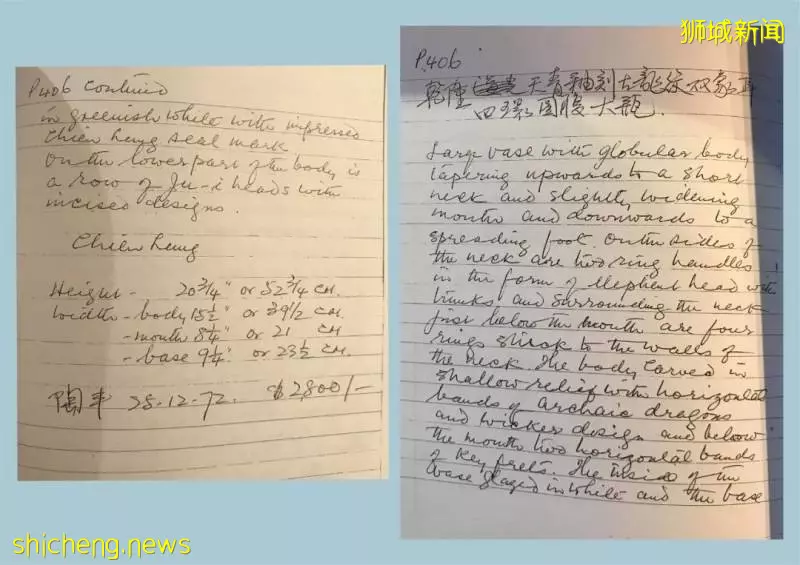 狮城新闻
P.406
乾隆天青釉刻古龍紋双象耳
四環圓腹大瓶.
Large vase with globular body
tapering upwards to a short
neck and slightly widening
mouth and downwards to a
spreading foot. On the sides of
the neck are two ring handles
in the form of elephant head with
trunks and surrounding the neck
just below the mouth are four
rings stuck to the walls of
the neck. The body carved in
shallow relief with horizontal
bands of archaic dragons
and wicker design and below
the mouth two horizontal bands
of key frets. The inside of the
base glazed in white and the base
P.406 continued
in greenish white with impressed
Chien Lung seal mark
On the lower part of the body is
a row of Ju-i heads with
incised designs.
Chien Lung
Height - 20 3/4" or 52 3/4 CM.
Width - body 15 1/2" or 39 1/2 CM.
- mouth 8 1/4" or 21 CM
- base 9 1/4" or 23 1/2 CM.
陶平 25.12.72. $2,800/-
shicheng.news